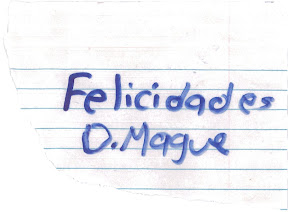 Felicidades
D. Mague